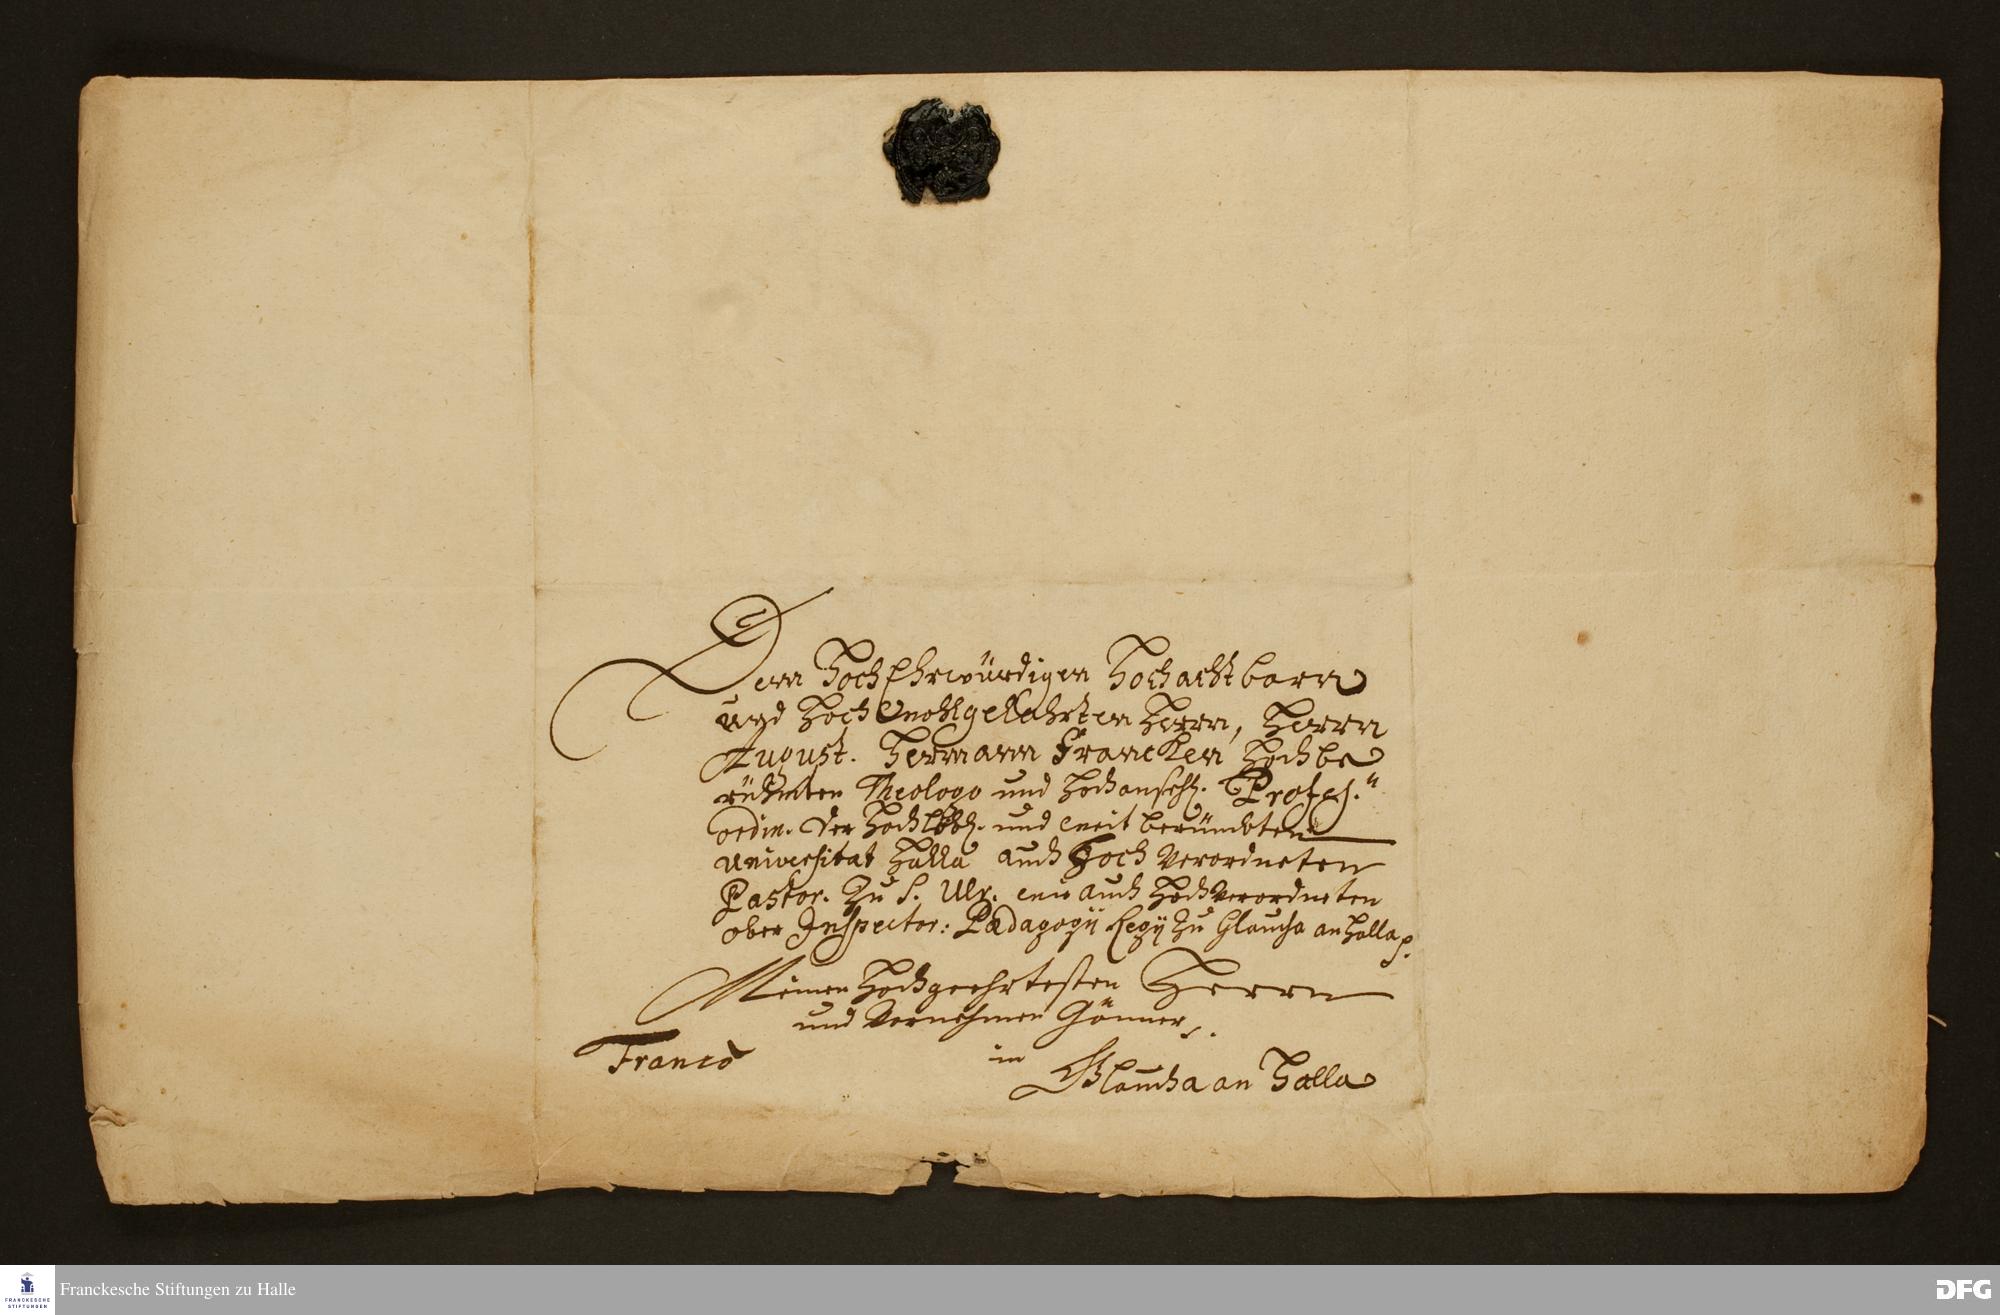 Dem HochEhrwürdigen Hochachtbarn
und Hoch Wohlgelahrten Herrn, Herrn
August. Hermann Francken Hochbe
rühmten Theologo und Hochansehl. Profes.
ordin. der Hochlöbl. und weit berümbten
Universitat Halla auch Hoch Verordneten
Pastor. Zu S. Ulr. wie auch Hoch Verordneten
ober Inspector: Pædagogij Regij Zu Glaucha an Halla p.
Meinen Hochgeehrtesten Herrn
und Vornehmen Gönner
Franco
in
Glaucha an Halla
FRANCKESCHE
STIFTUNGEN
Franckesche Stiftungen zu Halle
DFG